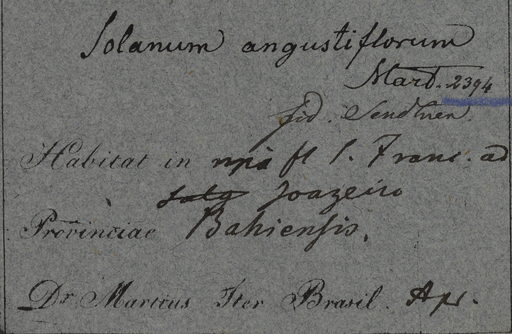 Solanum angustiflorum
Mart. 2394
fid. Sendtner.
Habitat in ripa fl S. Franc. ad
Joazeiro
Provinciae Bahiensis.
Dr. Martius Iter Brasil. Apr.